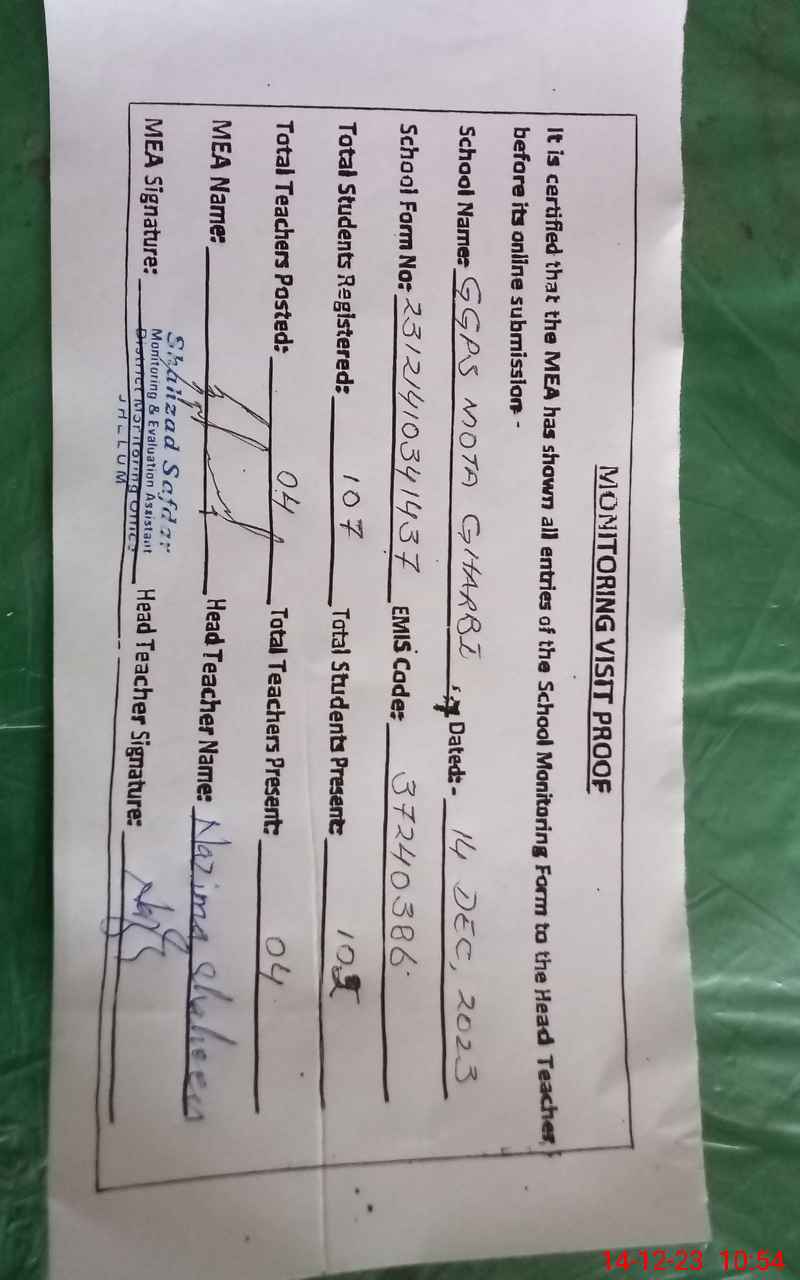 MONITORING VISIT PROOF
It is certified that the MEA has shown all entries of the School Monitoring Form to the Head Teacher
before its online submission-
School Name: GGPS MOTA GHARBI, Dated:- 14 DEC, 2023
School Form No: 23121410341437 EMIS Code: 37240386
Total Students Registered: 107 Total Students Present:
Total Teachers Posted: 04 Total Teachers Present: 04
MEA Name: Head Teacher Name: Nazima Shaheen
Shahzad Safdar
Monitoring & Evaluation Assistant
District Monitoring Office
JHELUM
MEA Signature: Head Teacher Signature:
14-12-23 10:54